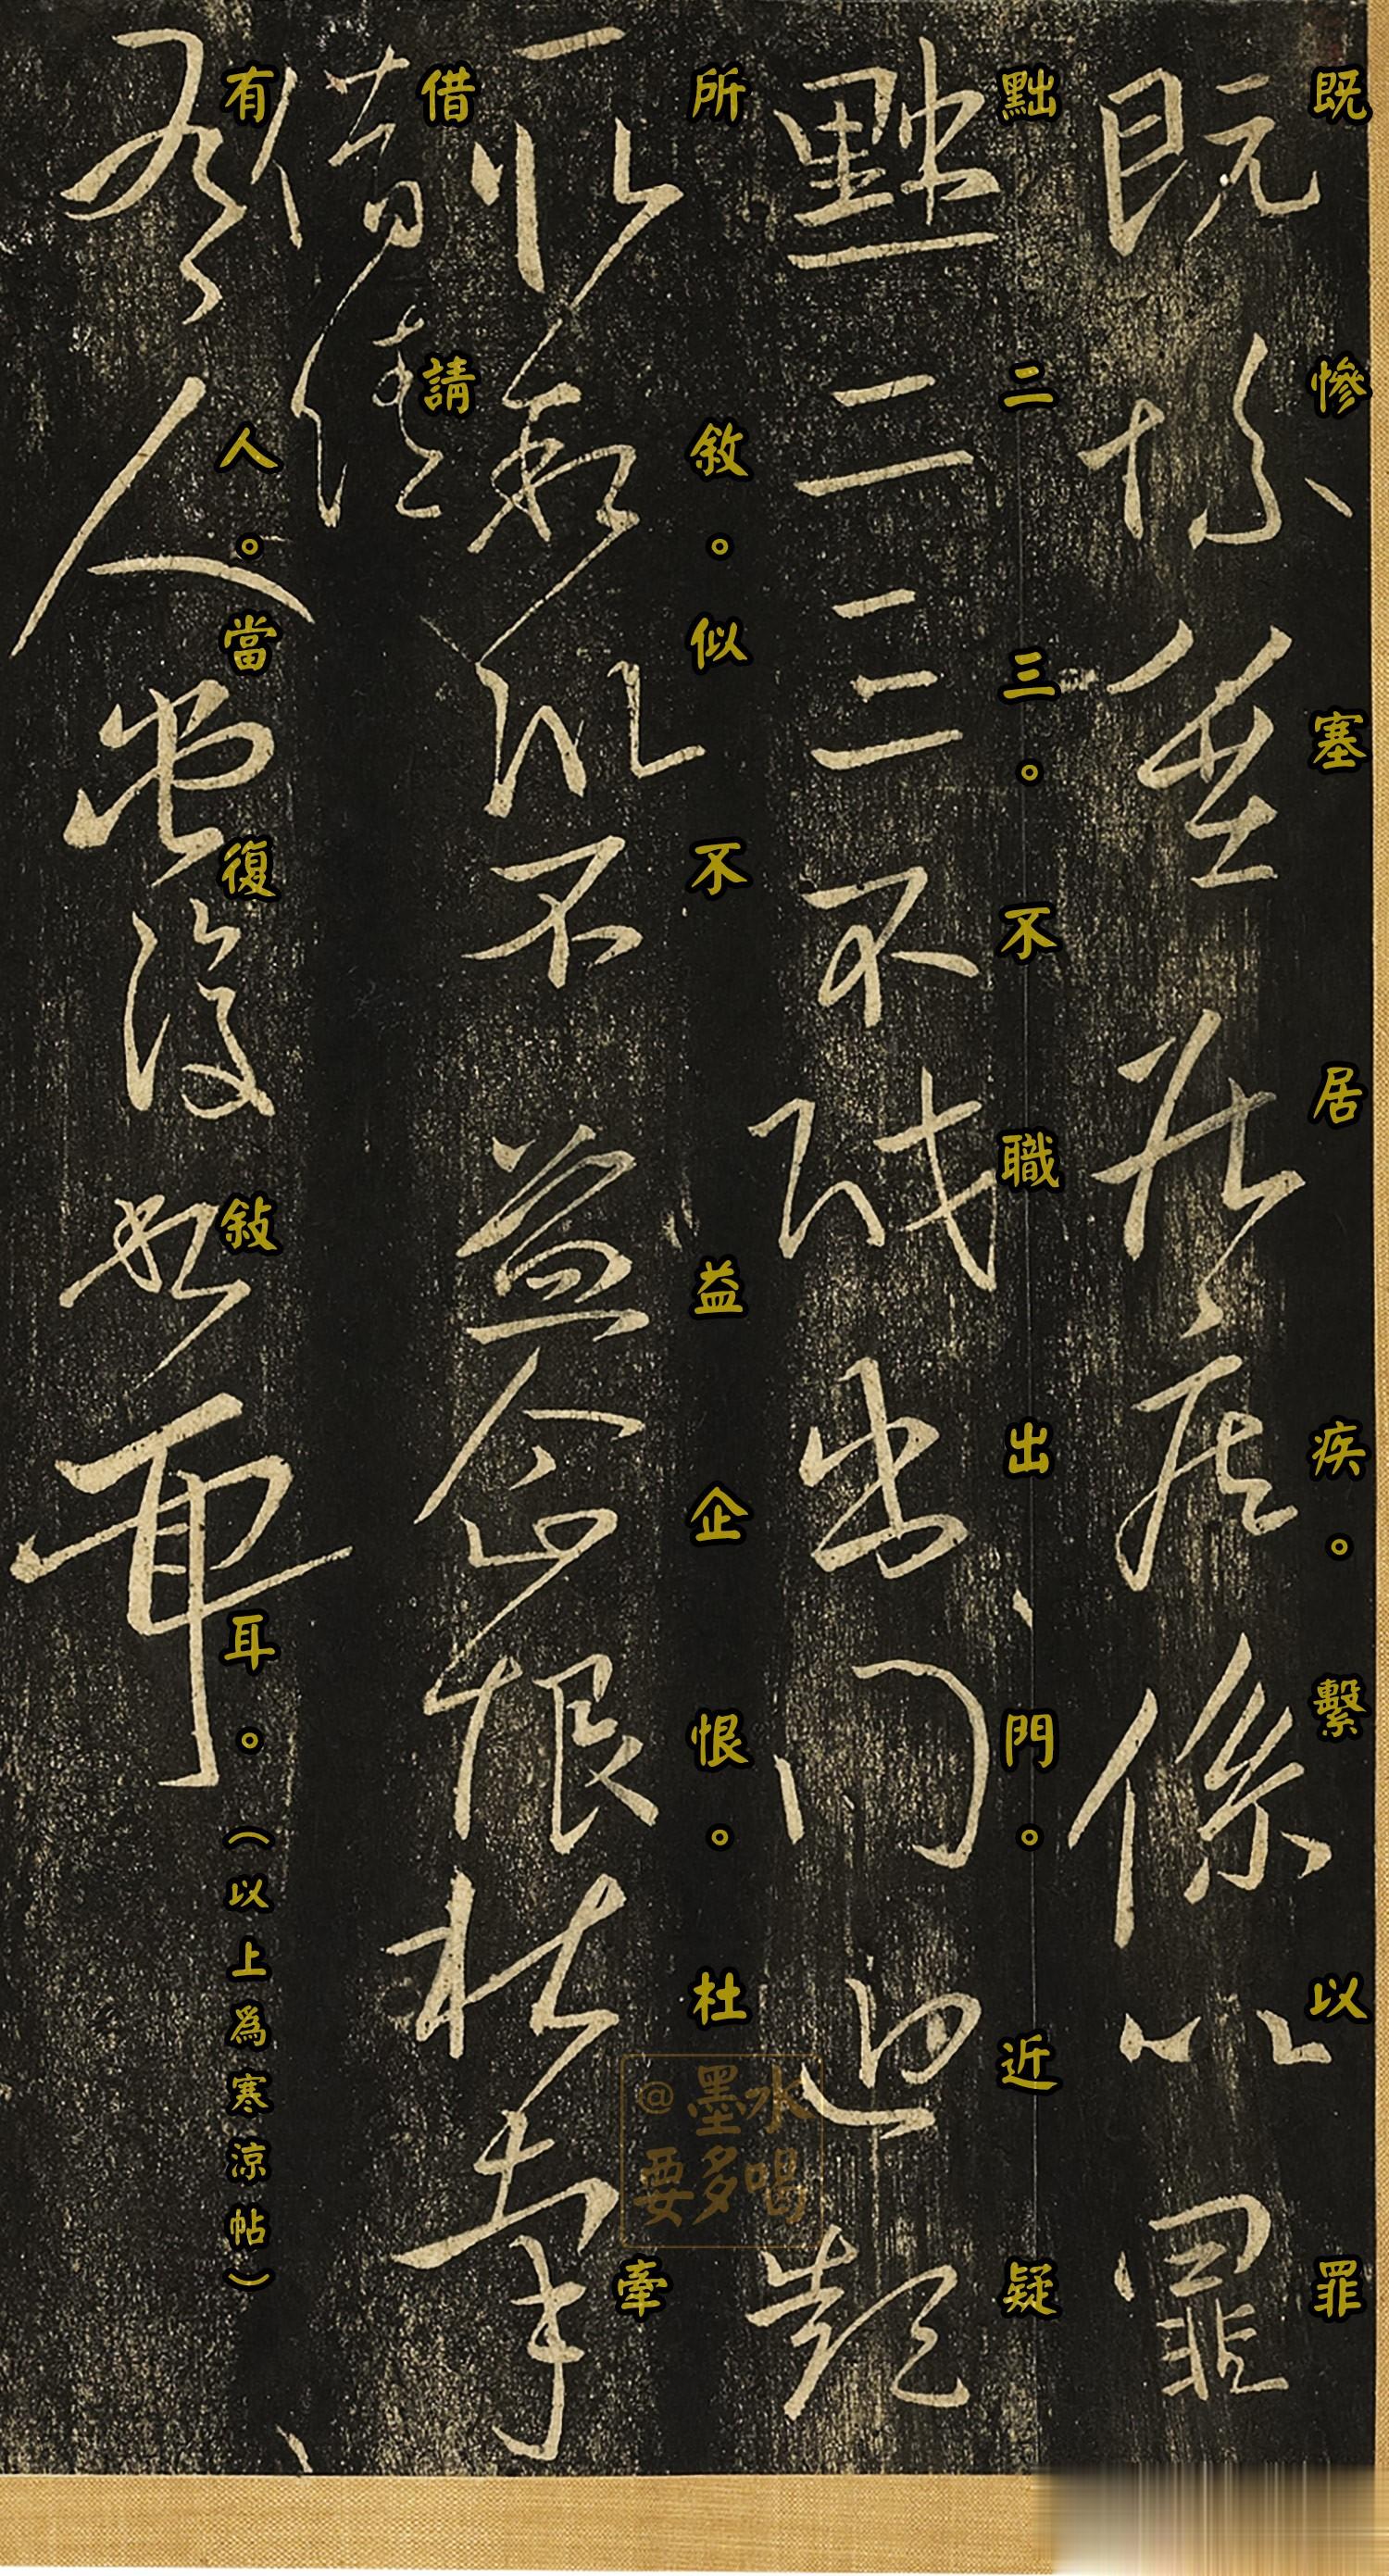 既慘塞居疾。繫以罪
黜二三。不職出門。近疑
所敘。似不益企恨。杜牽
借請
有人。當復敍耳。（以上爲寒涼帖）
@墨水
要多喝